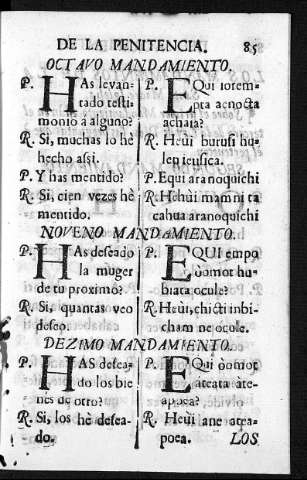 DE LA PENITENCIA. 85
OCTAVO MANDAMIENTO.
P. HAs levan-
tado testi
monio à alguno?
R. Si, muchas lo hè
hecho assi.
P. Y has mentido?
R. Si, cien vezes hè
mentido.
P. EQui iorem-
pta acnocta
achaia?
R. Heùi burusi hu-
len ieusica.
P. Equi aranoquichi
R. Hehùi mamni ta
cahua aranoquichi
NOVENO MANDAMIENTO.
P. HAs deseado
la muger
de tu proximo?
R. Si, quantas veo
deseo.
P. EQUI empo
òomot hu-
biata ocule?
R. Heùi, chicti inbi-
cham ne ocole.
DEZIMO MANDAMIENTO.
P. HAS desea-
do los bie
nes de otro?
R. Si, los hè desea-
do.
P. EQui òomot
ateata ate-
appea?
R. Heùi ane atea-
poea. LOS